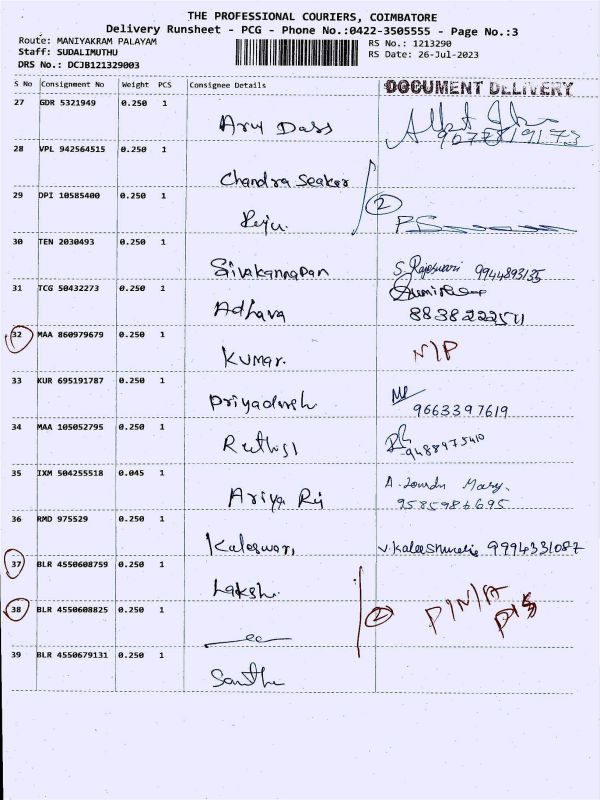 THE PROFESSIONAL COURIERS, COIMBATORE
Delivery Runsheet - PCG - Phone No.:0422-3505555 - Page No.:3
Route: MANIYAKRAM PALAYAM
RS No.: 1213290
Staff: SUDALIMUTHU
RS Date: 26-Jul-2023
DRS No.: DCJB121329003
S No Consignment No Weight PCS Consignee Details DOCUMENT DELIVERY
27 GDR 5321949 0.250 1
Arul Dass
28 VPL 942564515 0.250 1
Chandra Seakar
29 DPI 10585400 0.250 1
Reju. 2
30 TEN 2030493 0.250 1
Sivakannapan S. Rajeswari 9944893135
31 TCG 50432273 0.250 1
Adhava
32 MAA 860979679 0.250 1
Kumar. N/P
33 KUR 695191787 0.250 1
Priyadarsh 9663397619
34 MAA 105052795 0.250 1
9488975410
35 IXM 504255518 0.045 1
Ariya Rj A. Lourdu Mary.
9585986695
36 RMD 975529 0.250 1
Kaleswari V. Kaleshwari 9994331087
37 BLR 4550608759 0.250 1
Laksh
38 BLR 4550608825 0.250 1
2 P/N/A
39 BLR 4550679131 0.250 1
Santhi